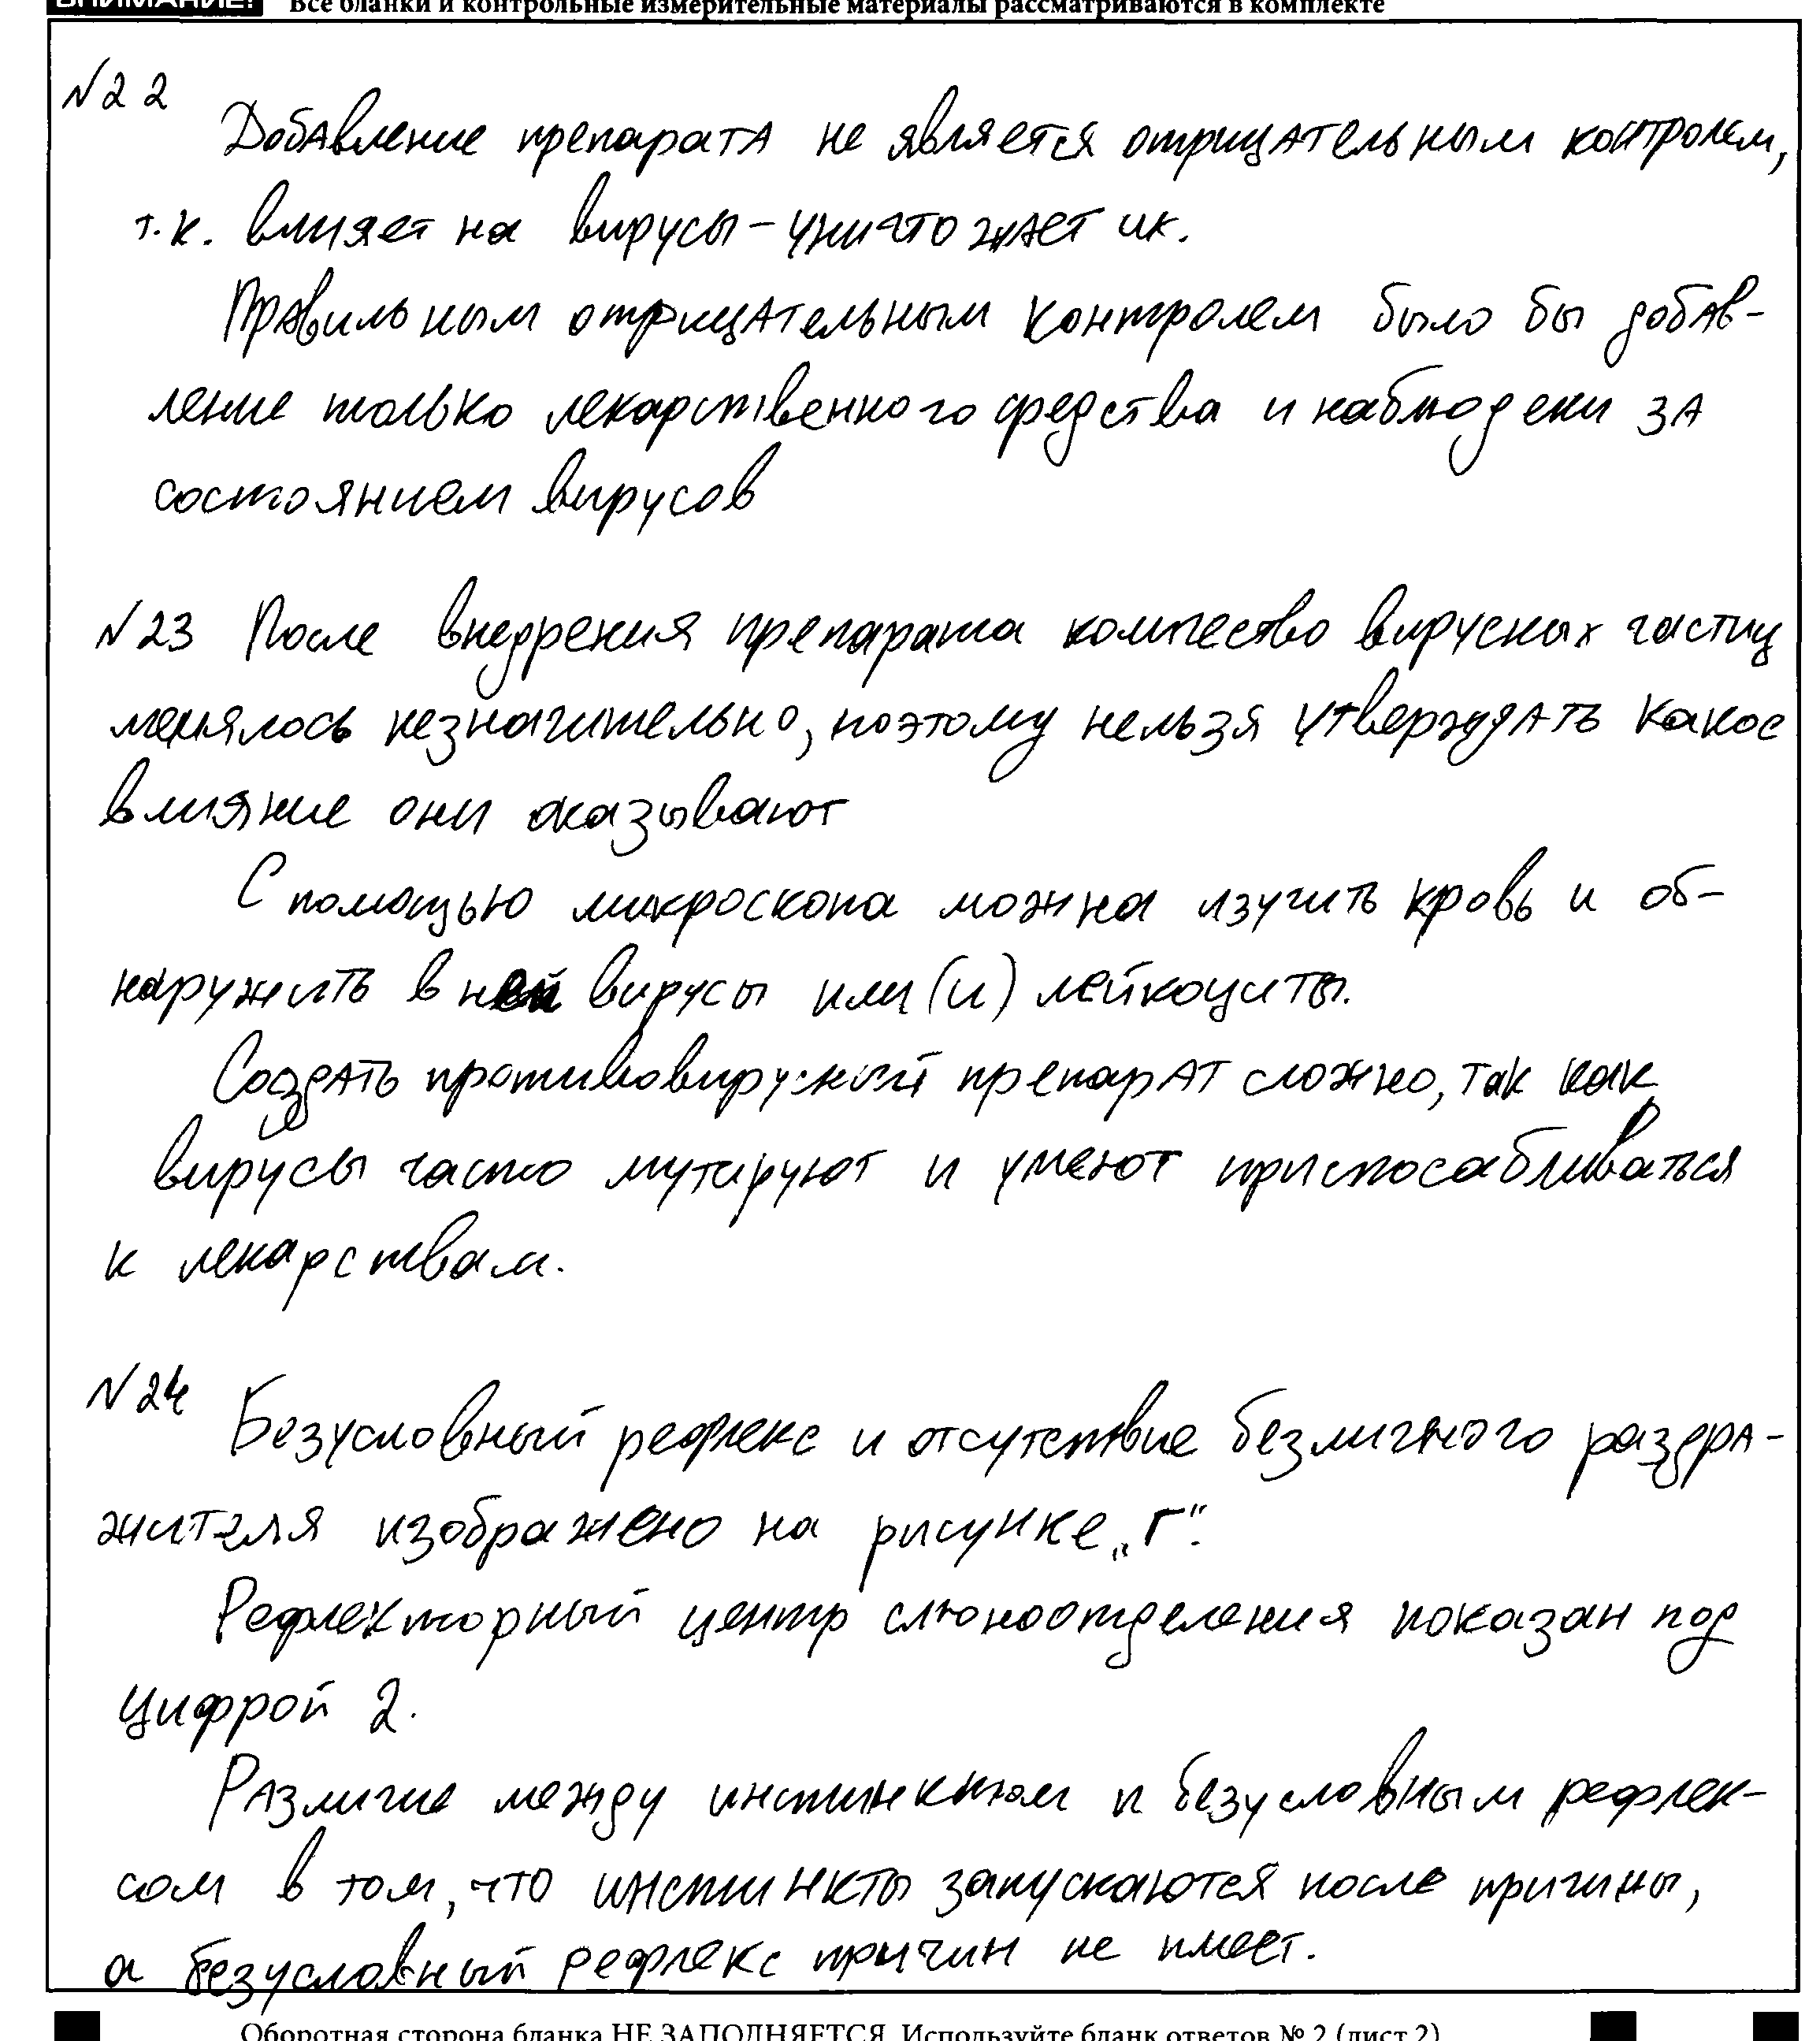 ВНИМАНИЕ! Все бланки и контрольные измерительные материалы рассматриваются в комплекте
№22
Добавление препарата не является отрицательным контролем,
т.к. влияет на вирусы – уничтожает их.
Правильным отрицательным контролем было бы добав-
ление только лекарственного средства и наблюдени за
состоянием вирусов
№23 После внедрения препарата количество вирусных частиц
менялось незначительно, поэтому нельзя утверждать какое
влияние они оказывают
С помощью микроскопа можна изучить кровь и об-
наружить в ней вирусы или (и) лейкоциты.
Создать противовирусный препарат сложно, так как
вирусы часто мутируют и умеют приспосабливаться
к лекарствам.
№24
Безусловный рефлекс и отсутствие безличного раздра-
жителя изображено на рисунке „Г“.
Рефлекторный центр слюноотделения показан под
цифрой 2.
Различие между инстинктом и безусловным рефлек-
сом в том, что инстинкты запускаются после причины,
а безусловный рефлекс причин не имеет.
Оборотная сторона бланка НЕ ЗАПОЛНЯЕТСЯ. Используйте бланк ответов № 2 (лист 2)